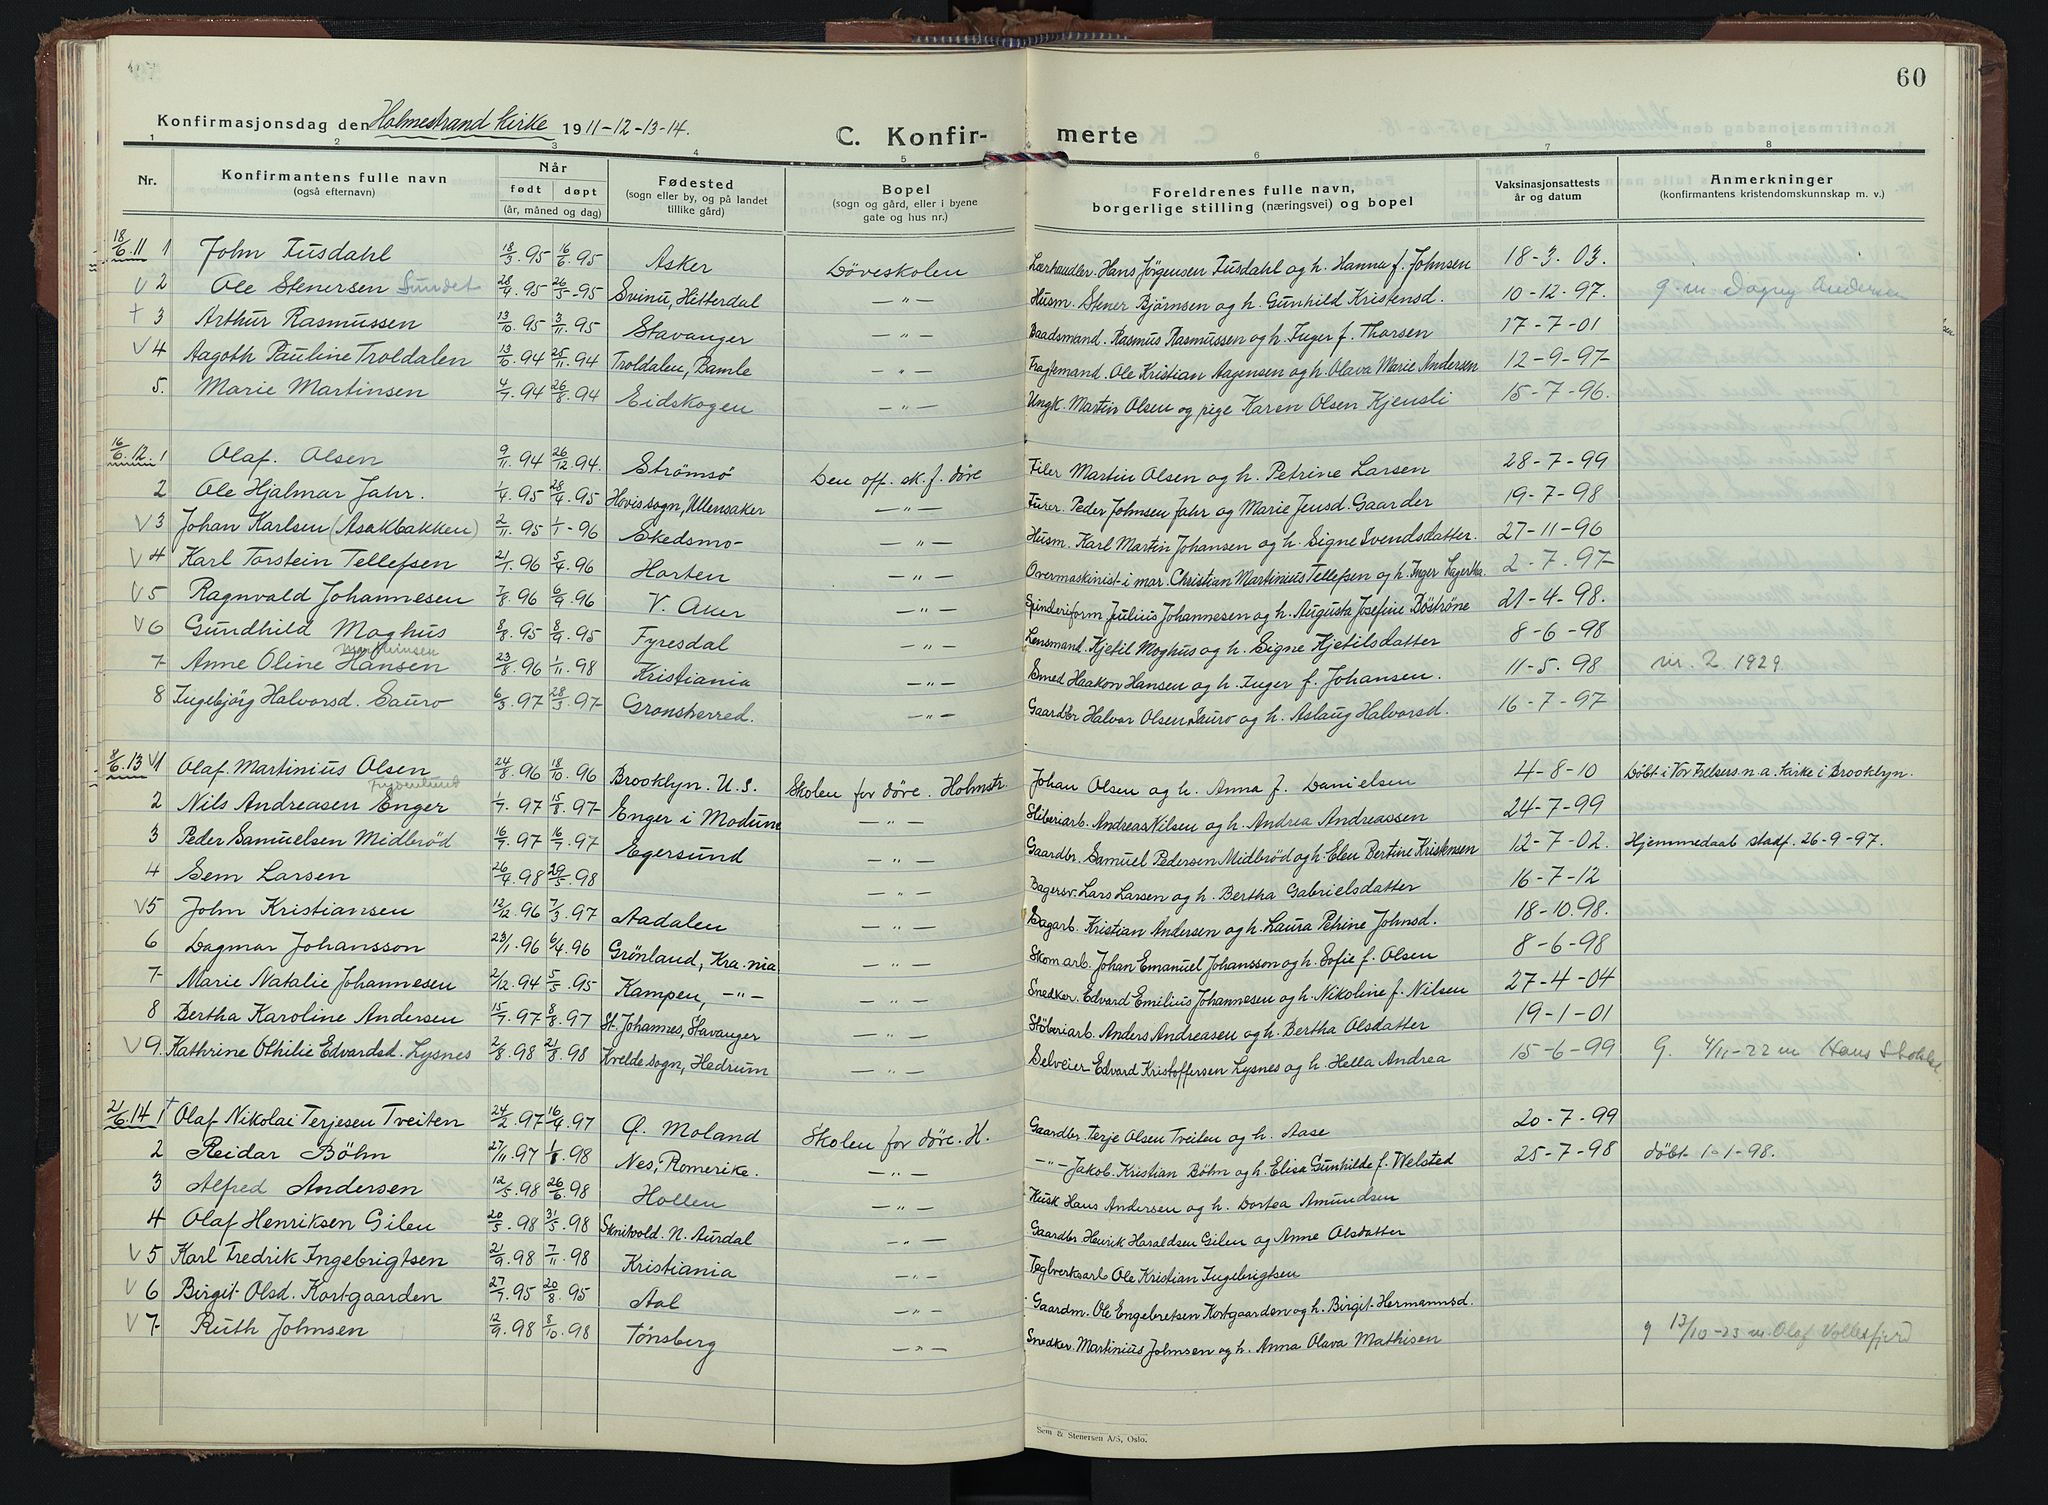 60
Konfirmasjonsdag den Holmestrand kirke 1911-12-13-14. C. Konfirmerte
1 2 3 4 5 6 7 8
Nr. Konfirmantens fulle navn (også efternavn) Når født døpt (år, måned og dag) Fødested (sogn eller by, og på landet tillike gård) Bopel (sogn og gård, eller i byene gate og hus nr.) Foreldrenes fulle navn, borgerlige stilling (næringsvei) og bopel Vaksinasjonsattests år og datum Anmerkninger (konfirmantens kristendomskunnskap m. v.)
18/6. 11 1 John Fusdahl 18/3. 95 16/6. 95 Asker Døveskolen Lærhandler. Hans Jørgensen Fusdahl og h. Hanna f. Johnsen 18-3. 03.
V 2 Ole Stenersen Sundet 28/4. 95 26/5-95 Svinu, Hitterdal —"— Husm. Stener Bjørnsen og h. Gunhild Kristensd. 10-12-97. g. m. Dagny Andersen
+ 3 Arthur Rasmussen 13/10. 95 3/11. 95 Stavanger —"— Baadsmand. Rasmus Rasmussen og h. Inger f. Thorsen 17-7-01
V 4 Aagoth Pauline Troldalen 13/10. 94 25/11. 94 Troldalen, Bamle —"— Fragtemand. Ole Kristian Aagensen og h. Olava Marie Andersen 12-9-97-
5. Marie Martinsen 4/7. 94 26/8. 94 Eidskogen —"— Ungk. Martin Olsen og pige Karen Olsen Kjensli 15-7-96.
16/6. 12. 1 Olaf. Olsen 9/11. 94 26/12. 94. Strömsö Den off. sk. f. døve Filer Martin Olsen og h. Petrine Larsen 28-7-99
2 Ole Hjalmar Jahr. 1/4. 95 28/4. 95 Hovissogn, Ullensaker —"— Furer. Peder Johnsen Jahr og Marie Jensd. Gaarder 19-7-98
V 3 Johan Karlsen (Asakbakken) 2/11. 95 1/1-96 Skedsmo- —"— Husm. Karl Martin Johansen og h. Signe Svendsdatter. 27-11-96
V 4 Karl Torstein Tellefsen 21/1. 96 5/4. 96 Horten —"— Overmaskinist i mar. Christian Martinius Tellefsen og h. Inger Lagertha. 2-7-97-
V 5 Ragnvald Johannesen 7/8. 96 6/9. 96 V. Aker —"— Spinderiform Julius Johannesen og h. Augusta Josefine Böströne 21-4-98.
V 6 Gundhild Moghus 8/8. 95 8/9. 95 Fyresdal —"— Lensmand. Kjetil Moghus og h. Signe Kjetilsdatter 8-6-98
7- Anne Oline Hansen 23/8. 96 1/11. 98 Kristiania —"— Smed Haakon Hansen og h. Inger f. Johansen. 11-5. 98 nr. 2. 1929
8 Ingebjörg Halvorsd. Sauro 6/3. 97 28/3. 97- Gransherred. —"— Gaardbr Halvor Olsen Sauro og h. Aslaug Halvorsd. 16-7-97
8/6. 13 V1 Olaf. Martinius Olsen 24/8. 96 18/10. 96 Brooklyn. U. S. Skolen for døve. Holmstr. Johan Olsen og h. Anna f. Danielsen 4-8-10 Døbt i Vor Frelsers n. a. kirke i Brooklyn.
2 Nils Andreasen Enger 1/7. 97 15/8. 97 Enger i Modum —"— Sliberiarb. Andreas Nilsen og h. Andrea Andreassen 24-7-99
3 Peder Samuelsen Midbrød 16/7. 97 16/7. 97 Egersund —"— Gaardbr. Samuel Pedersen Midbrød og h. Elen Bertine Kristensen 12-7-02. Hjemmedaab stadf. 26-9-97.
4 Sem Larsen 26/4. 98 29/5. 98 —"— Bagersv. Lars Larsen og h. Bertha Gabrielsdatter 16-7-12
V 5 John Kristiansen 12/12. 96 7/3. 97 Aadalen —"— Sagarb. Kristian Andersen og h. Laura Petrine Johnsd. 18-10. 98.
6 Dagmar Johansson 23/1. 96 6/4. 96 Grönland, Kra.nia —"— Skomarb. Johan Emanuel Johansson og h. Sofie f. Olsen 8-6-98
7- Marie Natalie Johannesen 2/12. 94 5/5. 95 Kampen, —"— —"— Snedker. Edvard Emilius Johannesen og h. Nikoline f. Nilsen 27-4-04
8 Bertha Karoline Andersen 15/7. 97 8/8. 97 St. Johannes, Stavanger —"— Støberiarb. Anders Andreasen og h. Bertha Olsdatter 19-1-01
V 9. Kathrine Othilie Edvardsd. Lysnes 2/8. 98 21/8. 98 Kvelde sogn, Hedrum —"— Selveier Edvard Kristoffersen Lysnes og h. Hella Andrea 15-6-99 g. 4/11-22 m Hans
21/6. 14 1 + Olaf Nikolai Terjesen Tveiten 24/2. 97 16/4. 97 Ø. Moland Skolen for døve. H. Gaardbr. Terje Olsen Tveiten og h. Aase 20-7-99
2 Reidar Böhn 27/11. 97 1/8. 98 Nes, Romerike. —"— —"— Jakob. Kristian Böhn og h. Elisa Gunhilde f. Welsted 25-7-98 døbt 1-1-98.
3 Alfred Andersen 12/5. 98 26/6. 98 Hollen —"— Kusk Hans Andersen og h. Dortea Amundsen
4 Olaf Henriksen Gilen 20/5. 98 31/5. 98 N. Aurdal —"— Gaardbr. Henrik Haraldsen Gilen og Anne Olsdatter
V 5 Karl Fredrik Ingebrigtsen 21/9. 98 7/11. 98 Kristiania —"— Teglverksarb Ole Kristian Ingebrigtsen
V 6 Birgit Olsd. Kortgaarden 27/7. 95 20/8. 95 Aal —"— Gaardm. Ole Engebretsen Kortgaarden og h. Birgit Hermannsd.
V 7- Ruth Johnsen 12/9. 98 8/10. 98 Tønsberg —"— Snedker. Martinius Johnsen og h. Anna Olava Mathisen g 13/10-23 m. Olaf Vollesfjord
Sem & Stenersen A/S, Oslo.